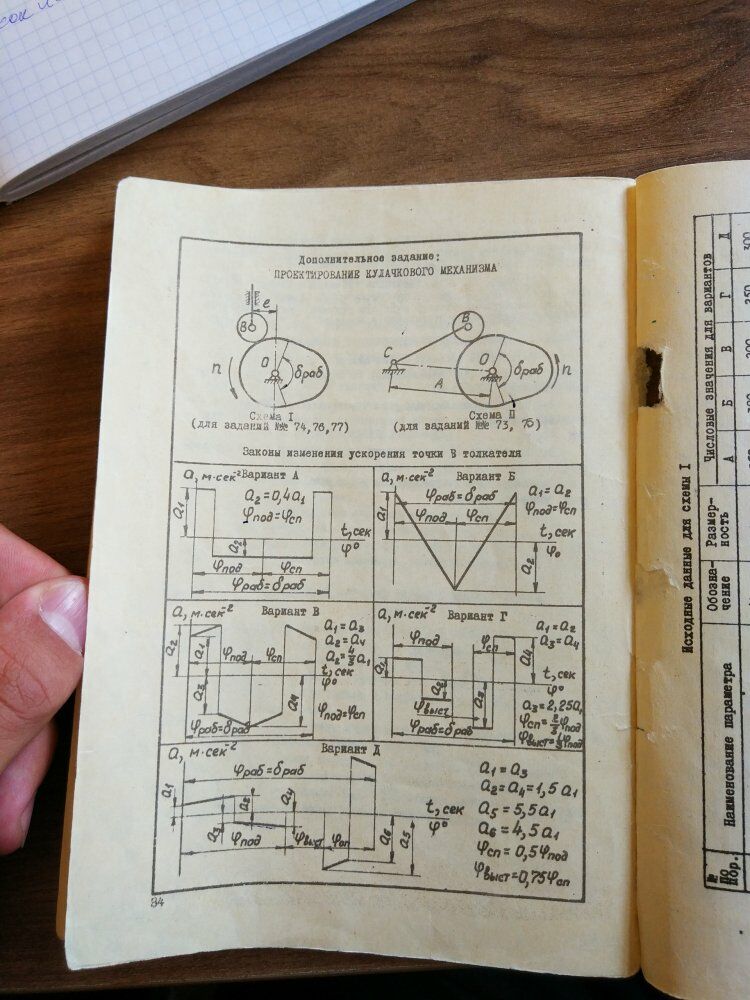 Дополнительное задание:
ПРОЕКТИРОВАНИЕ КУЛАЧКОВОГО МЕХАНИЗМА
e
B
O
n
δраб
Схема I
(для заданий №№ 74,76,77)
B
C
O
A
δраб
n
Схема II
(для заданий №№ 73, 75)
Законы изменения ускорения точки B толкателя
a, м·сек⁻² Вариант А
a₁
a₂=0,4a₁
φпод=φсп
a₂
t, сек
φ°
φпод
φсп
φраб=δраб
a, м·сек⁻² Вариант Б
φраб=δраб
a₁=a₂
φпод=φсп
a₁
φпод
φсп
t, сек
φ°
a₂
a, м·сек⁻² Вариант В
a₁=a₃
a₂=a₄
a₂=4/3a₁
a₂
a₁
φпод
φсп
t, сек
φ°
a₃
a₄
φпод=φсп
φраб=δраб
a, м·сек⁻² Вариант Г
a₁=a₂
a₃=a₄
φпод
φсп
a₁
a₄
t, сек
φ°
a₂
a₃
φвыст
a₃=2,25a₁
φсп=2/3φпод
φраб=δраб
a, м·сек⁻² Вариант Д
φраб=δраб
a₁
a₂
a₄
t, сек
φ°
a₃
a₆
a₅
φпод
φвыст
φсп
a₁=a₃
a₂=a₄=1,5a₁
a₅=5,5a₁
a₆=4,5a₁
φсп=0,5φпод
φвыст=0,75φсп
34
Исходные данные для схемы I
№ по пор.
Наименование параметра
Обозна-
чение
Размер-
ность
Числовые значения для вариантов
А
Б
В
Г
Д
300